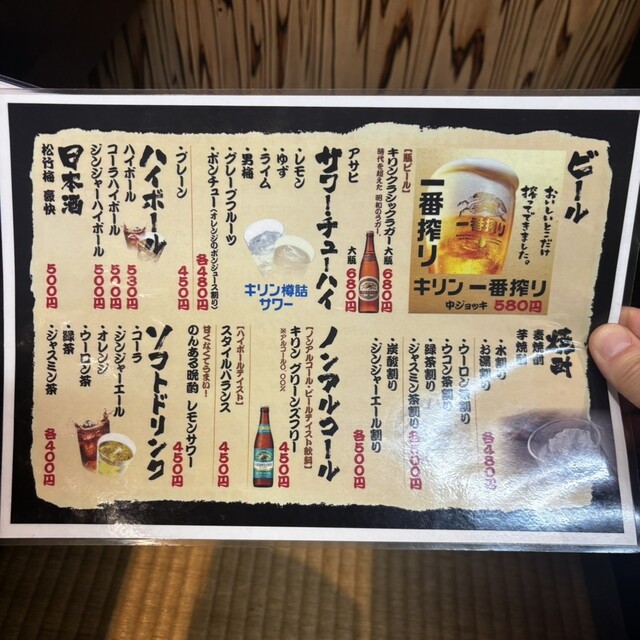 ビール
おいしいとこだけ
搾ってできました。
一番搾り
一番搾り
キリン 一番搾り
中ジョッキ 580円
【瓶ビール】
キリンクラシックラガー 大瓶 680円
時代を超えた 昭和のラガー。
アサヒ 大瓶 680円
サワー・チューハイ
キリン樽詰
サワー
・レモン
・ゆず
・ライム
・男梅
・グレープフルーツ
・ポンチュー(オレンジのポンジュース割り)
各480円
・プレーン 450円
ハイボール
ハイボール 530円
コーラハイボール 570円
ジンジャーハイボール 500円
日本酒
松竹梅 豪快 500円
焼酎
麦焼酎
芋焼酎
・水割り
・お湯割り
各480円
・ウーロン茶割り
・ウコン茶割り
・緑茶割り
・ジャスミン茶割り
・炭酸割り
・ジンジャーエール割り
各500円
ノンアルコール
【ノンアルコール・ビールテイスト飲料】
キリン グリーンズフリー 450円
※アルコール0.00%
【ハイボールテイスト】
スタイルバランス 450円
甘くなくてうまい!
のんある晩酌 レモンサワー 450円
ソフトドリンク
・コーラ
・ジンジャーエール
・オレンジ
・ウーロン茶
・緑茶
・ジャスミン茶
各400円